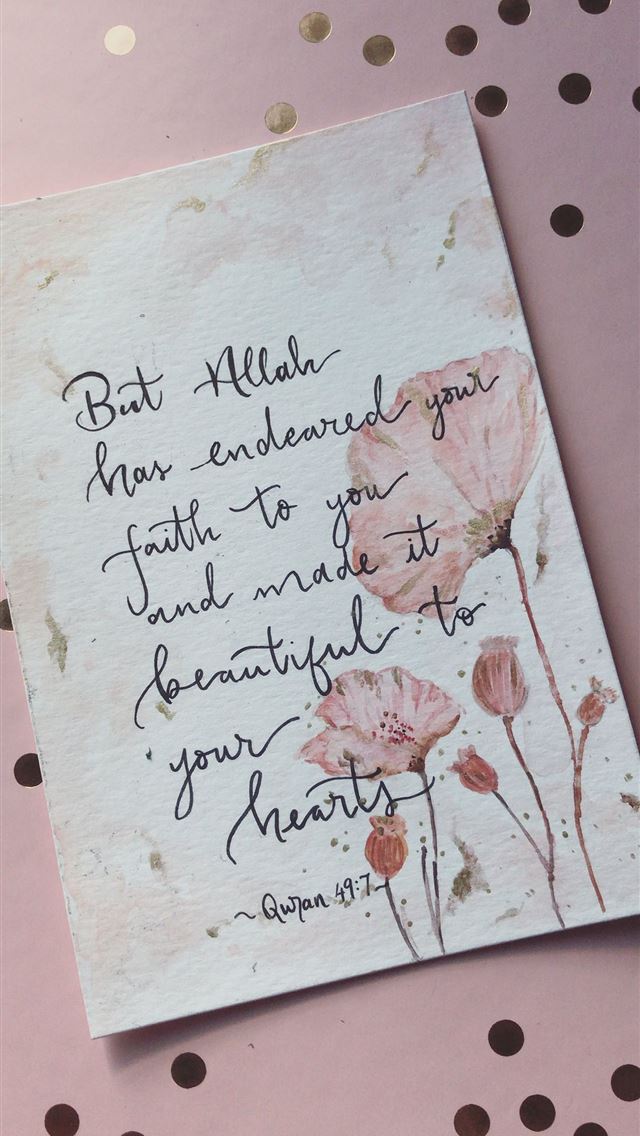 But Allah
has endeared your
faith to you
and made it
beautiful to
your
hearts
~ Quran 49:7~